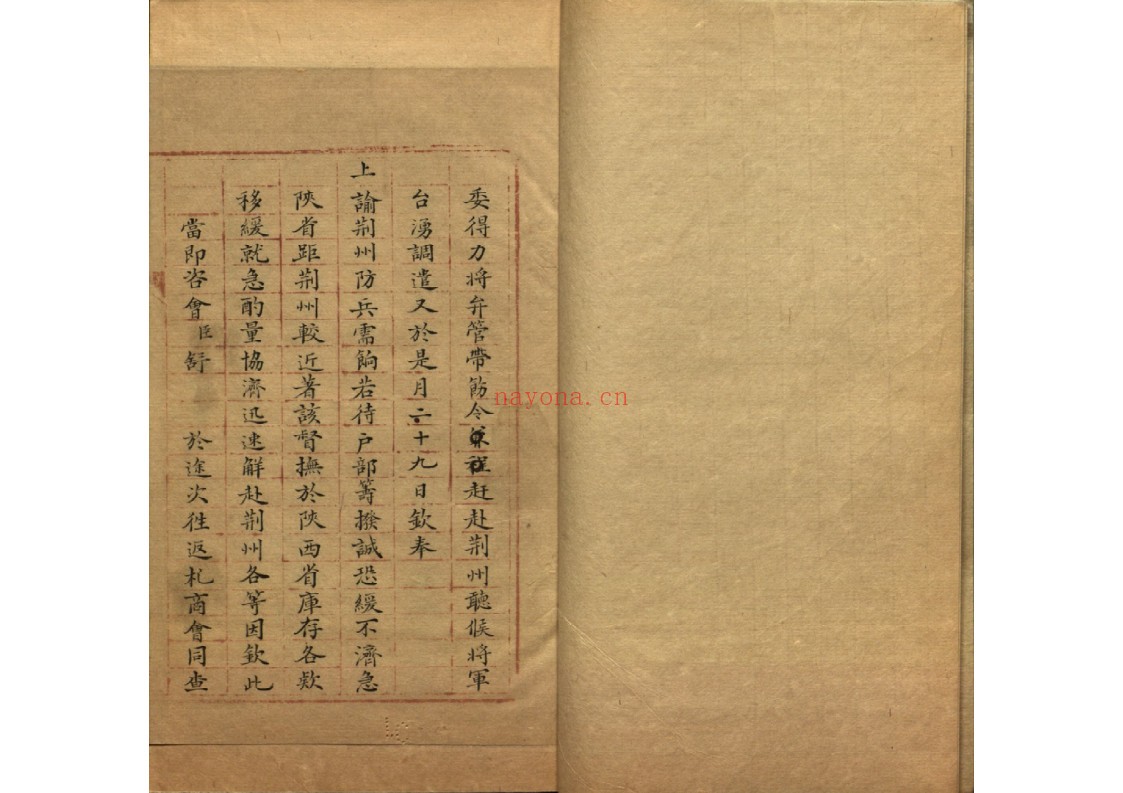 委得力將弁管帶飭令兼程赶赴荆州聽候將軍
台湧調遣又於是月二十九日欽奉
上諭荆州防兵需餉若待户部籌撥誠恐緩不濟急
陜省距荆州較近著該督撫於陜西省庫存各欵
移緩就急酌量協濟迅速解赴荆州各等因欽此
當即咨會臣舒 於途次徃返札商會同查
nayona.cn